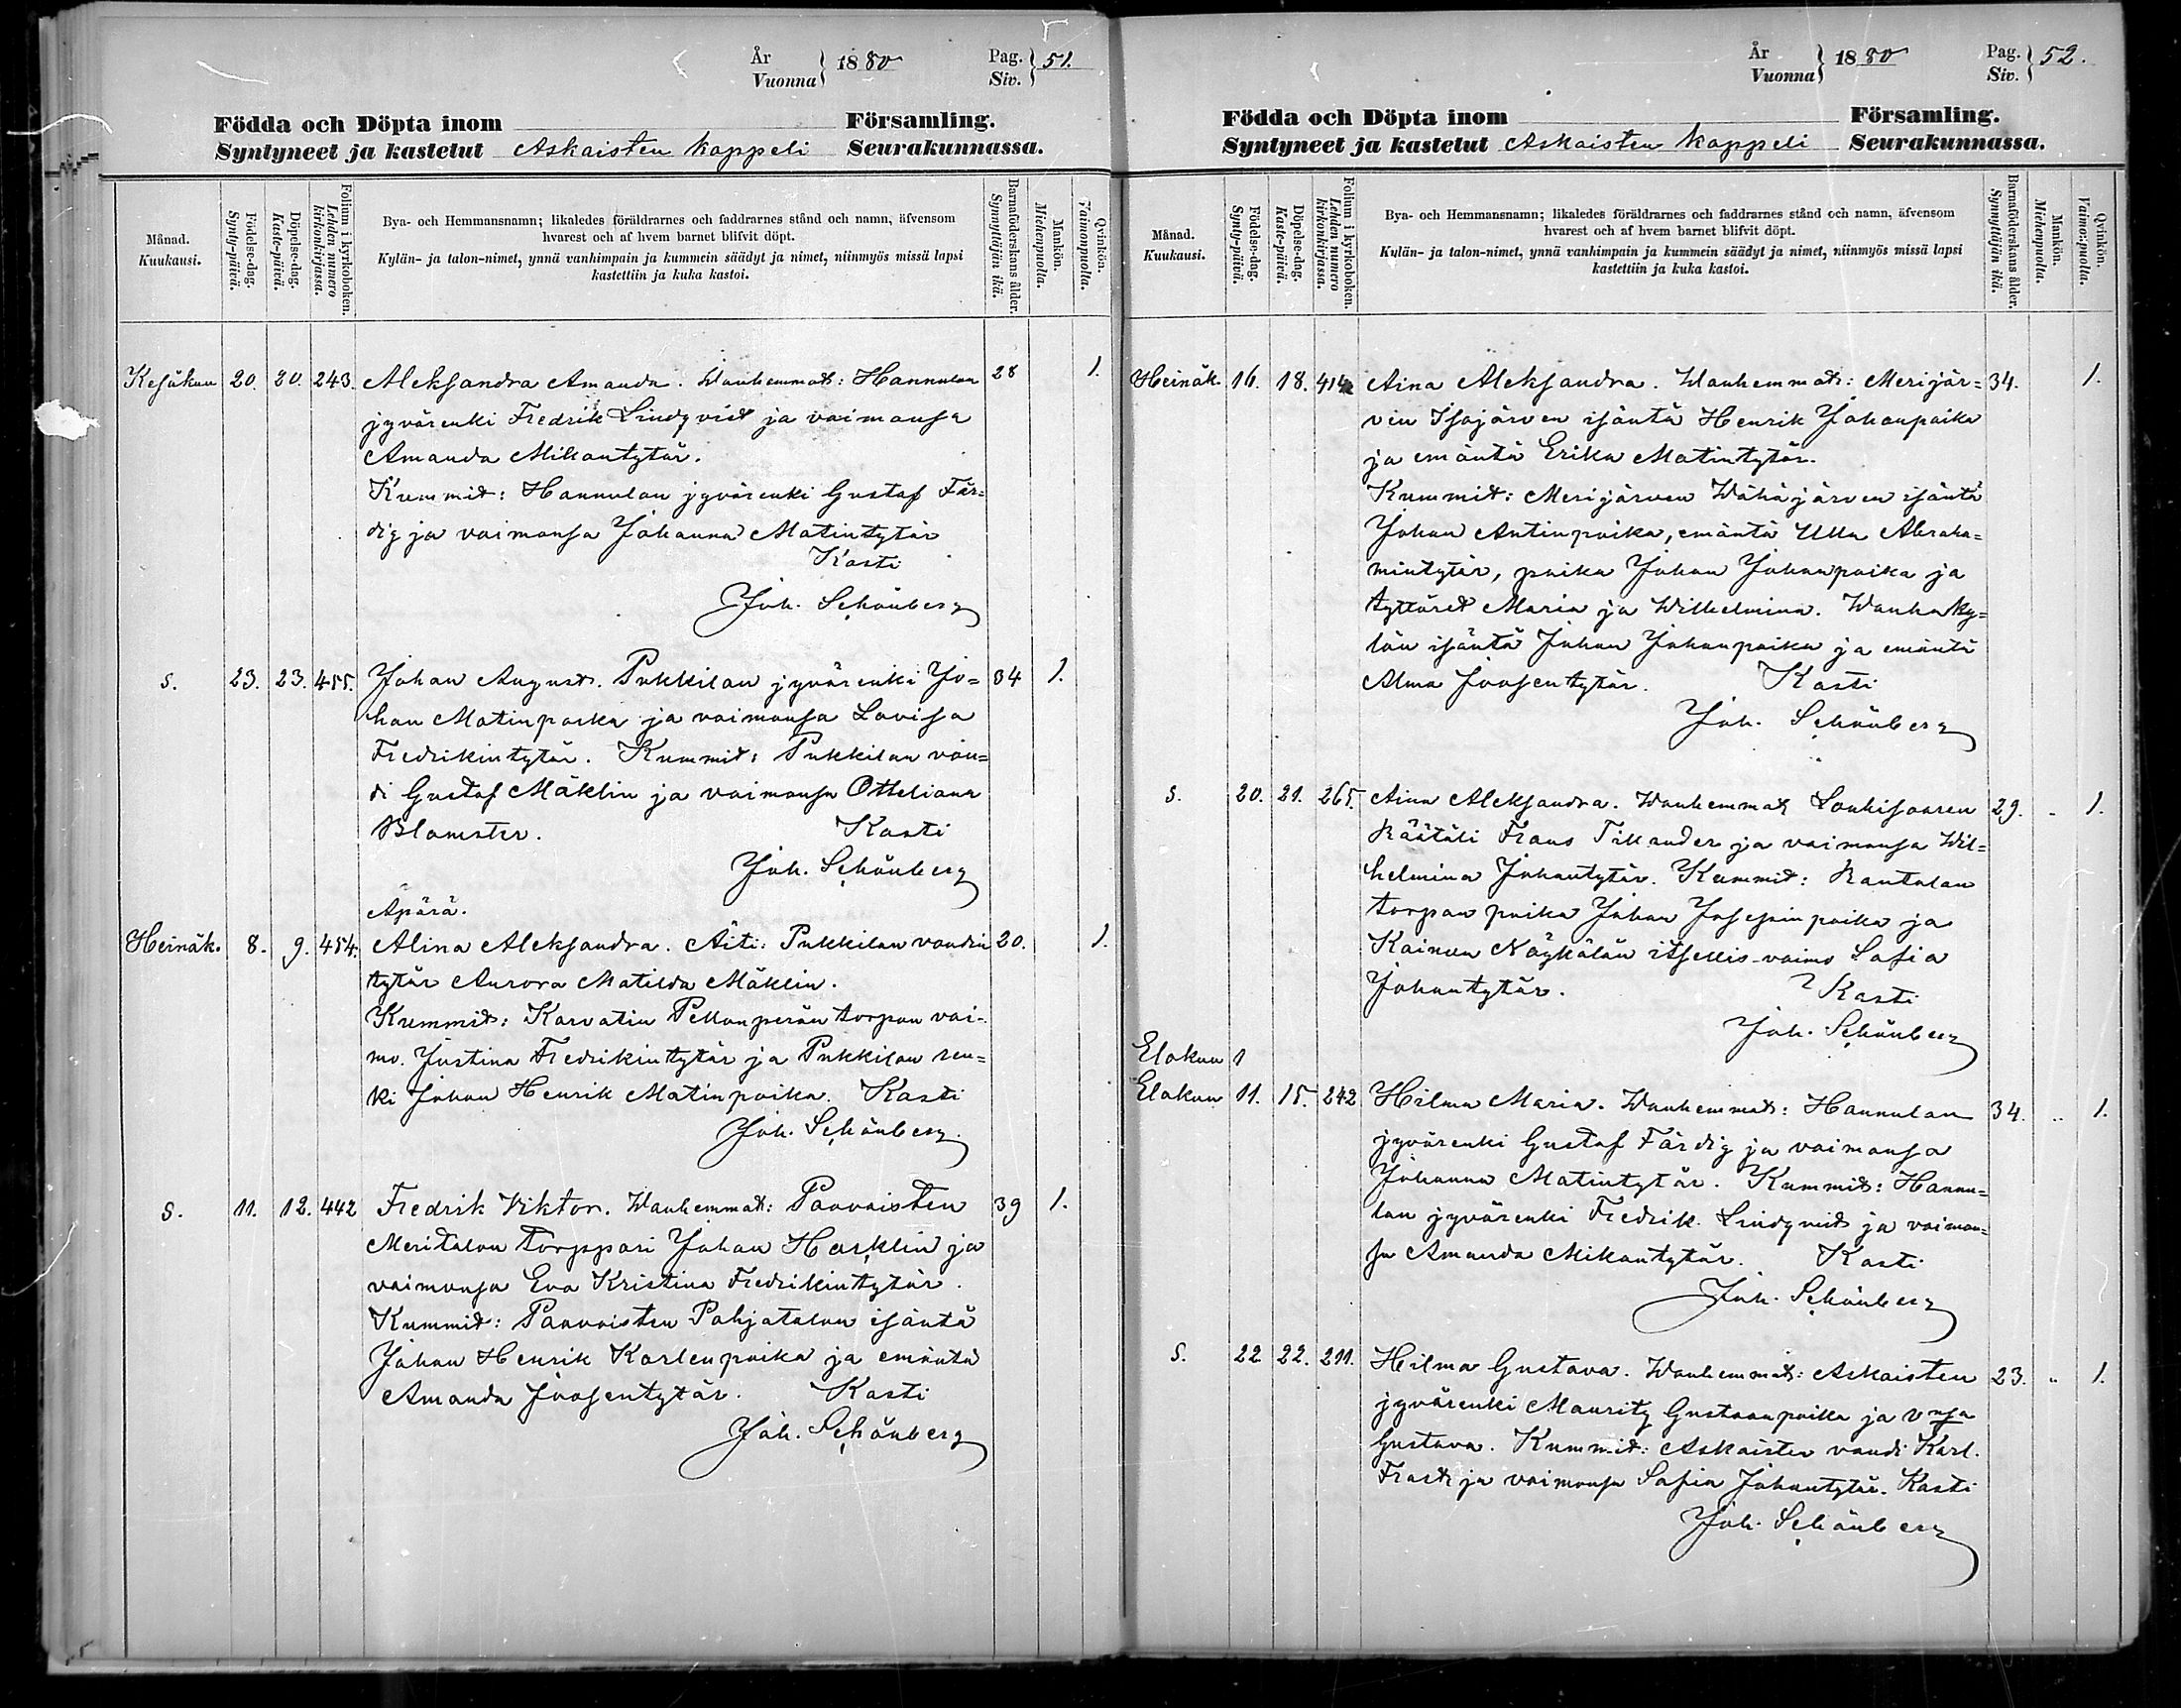 År
Vuonna } 1880 Pag.
Siv. } 51.
Födda och Döpta inom Församling.
Syntyneet ja kastetut Askaisten kappeli Seurakunnassa.
Månad.
Kuukausi.
Födelse-dag.
Synty-päivä.
Döpelse-dag.
Kaste-päivä.
Folium i kyrkoboken.
Lehden numero
kirkonkirjassa.
Bya- och Hemmansnamn; likaledes föräldrarnes och faddrarnes stånd och namn, äfvensom
hvarest och af hvem barnet blifvit döpt.
Kylän- ja talon-nimet, ynnä vanhimpain ja kummein säädyt ja nimet, niinmyös missä lapsi
kastettiin ja kuka kastoi.
Barnaföderskans ålder.
Synnyttäjän ikä.
Mankön.
Miehenpuolta.
Qvinkön.
Vaimonpuolta.
Kesäkuu 20. 20. 243. Aleksandra Amanda. Wanhemmat: Hannulan 28 1.
jyvärenki Fredrik Lindqvist ja vaimonsa
Amanda Mikontytär.
Kummit: Hannulan jyvärenki Gustaf Fär=
dig ja vaimonsa Johanna Matintytär
Kasti
Joh. Schönberg
S. 23. 23. 455. Johan August. Pukkilan jyvärenki Jo= 34 1.
han Matinpoika ja vaimonsa Lovisa
Fredrikintytär. Kummit: Pukkilan vou=
ti Gustaf Mäklin ja vaimonsa Otteliana
Blomster. Kasti
Joh. Schönberg
Äpärä.
Heinäk. 8. 9. 454. Alina Aleksandra. Äiti: Pukkilan voudin 20. 1.
tytär Aurora Matilda Mäklin.
Kummit: Karvatin Pellonperän torpan vai-
mo Justina Fredrikintytär ja Pukkilan ren=
ki Johan Henrik Matinpoika. Kasti
Joh. Schönberg.
S. 11. 12. 442 Fredrik Viktor. Wanhemmat: Paavaisten 39 1.
Meritalon torppari Johan Harklin ja
vaimonsa Eva Kristina Fredrikintytär.
Kummit: Paavaisten Pohjatalon isäntä
Johan Henrik Karlenpoika ja emäntä
Amanda Joosentytär. Kasti
Joh. Schönberg
År
Vuonna } 1880 Pag.
Siv. } 52.
Födda och Döpta inom Församling.
Syntyneet ja kastetut Askaisten kappeli Seurakunnassa.
Månad.
Kuukausi.
Födelse-dag.
Synty-päivä.
Döpelse-dag.
Kaste-päivä.
Folium i kyrkoboken.
Lehden numero
kirkonkirjassa.
Bya- och Hemmansnamn; likaledes föräldrarnes och faddrarnes stånd och namn, äfvensom
hvarest och af hvem barnet blifvit döpt.
Kylän- ja talon-nimet, ynnä vanhimpain ja kummein säädyt ja nimet, niinmyös missä lapsi
kastettiin ja kuka kastoi.
Barnaföderskans ålder.
Synnyttäjän ikä.
Mankön.
Miehenpuolta.
Qvinkön.
Vaimonpuolta.
Heinäk. 16. 18. 414 Aina Aleksandra. Wanhemmat: Merijär= 34. 1.
vin Isojärven isäntä Henrik Johanpoika
ja emäntä Erika Matintytär.
Kummit: Merijärven Wähäjärven isäntä
Johan Antinpoika, emäntä Ulla Abraha=
mintytär, poika Johan Johanpoika ja
tyttäret Maria ja Wilhelmina. Wanhaky=
län isäntä Johan Johanpoika ja emäntä
Alma Joosentytär. Kasti
Joh. Schönberg
S. 20. 21. 265. Aina Aleksandra. Wanhemmat Louhisaaren 29. 1.
Räätäli Frans Tillander ja vaimonsa Wil=
helmina Johantytär. Kummit: Rantalan
torpan poika Johan Josepinpoika ja
Kairisen Näykälän itsellis-vaimo Sofia
Johantytär. Kasti
Joh. Schönberg
Elokuu 1
Elokuu 11. 15. 242 Hilma Maria. Wanhemmat: Hannulan 34. " 1.
jyvärenki Gustaf Färdig ja vaimonsa
Johanna Matintytär. Kummit: Hannu=
lan jyvärenki Fredrik Lindqvist ja vaimon=
sa Amanda Mikontytär. Kasti
Joh. Schönberg
S. 22 22. 211. Hilma Gustava. Wanhemmat: Askaisten 23. " 1.
jyvärenki Mauritz Gustaanpoika ja vnsa
Gustava. Kummit: Askaisten vouti Karl
Frost ja vaimonsa Sofia Johantytär. Kasti
Joh. Schönberg